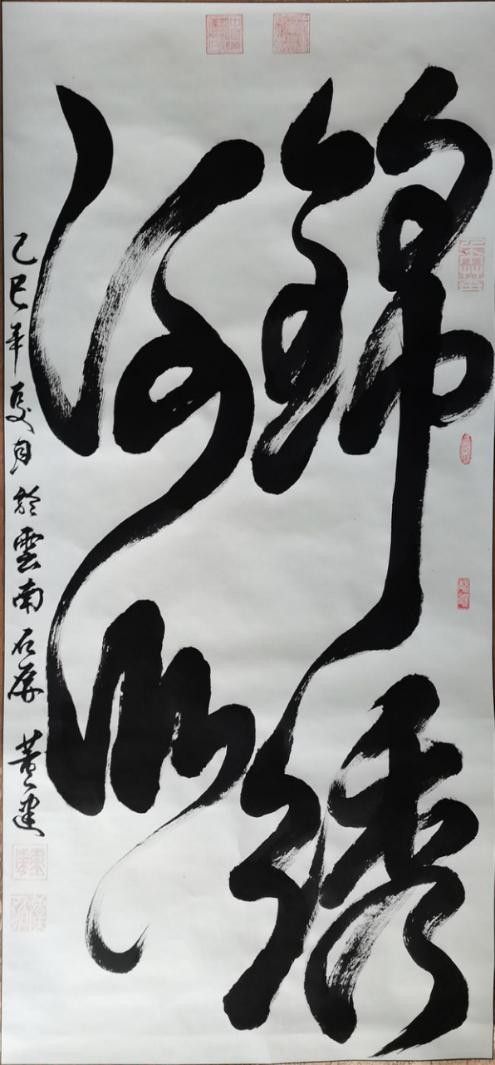 錦绣
河山
己巳年夏月於雲南石屏 黄建